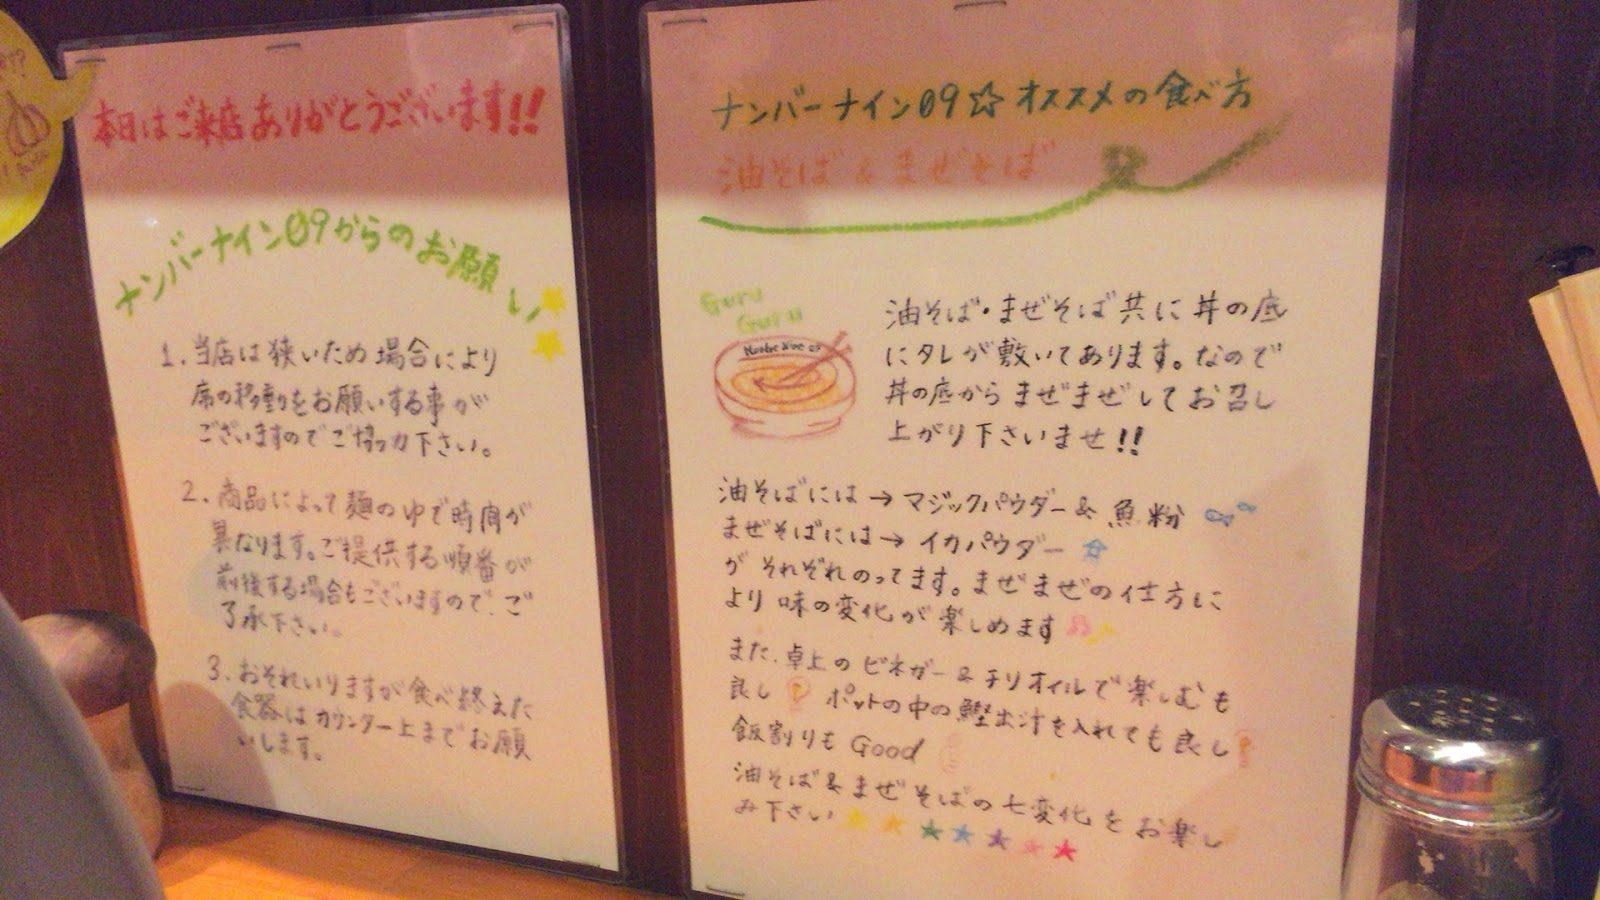 本日はご来店ありがとうございます!!
ナンバーナイン09からのお願い
1. 当店は狭いため場合により
席の移動をお願いする事が
ございますのでご協力下さい。
2. 商品によって麺のゆで時間が
異なります。ご提供する順番が
前後する場合もございますので、ご
了承下さい。
3. おそれいりますが食べ終えた
食器はカウンター上までお願
いします。
ナンバーナイン09☆オススメの食べ方
油そば&まぜそば
Guru
Guru
油そば・まぜそば共に丼の底
にタレが敷いてあります。なので
丼の底からまぜまぜしてお召し
上がり下さいませ!!
油そばには→マジックパウダー&魚粉
まぜそばには→イカパウダー
がそれぞれのってます。まぜまぜの仕方に
より味の変化が楽しめます
また、卓上のビネガー&チリオイルで楽しむも
良し ポットの中の鰹出汁を入れても良し
飯割りもGood
油そば&まぜそばの七変化をお楽し
み下さい